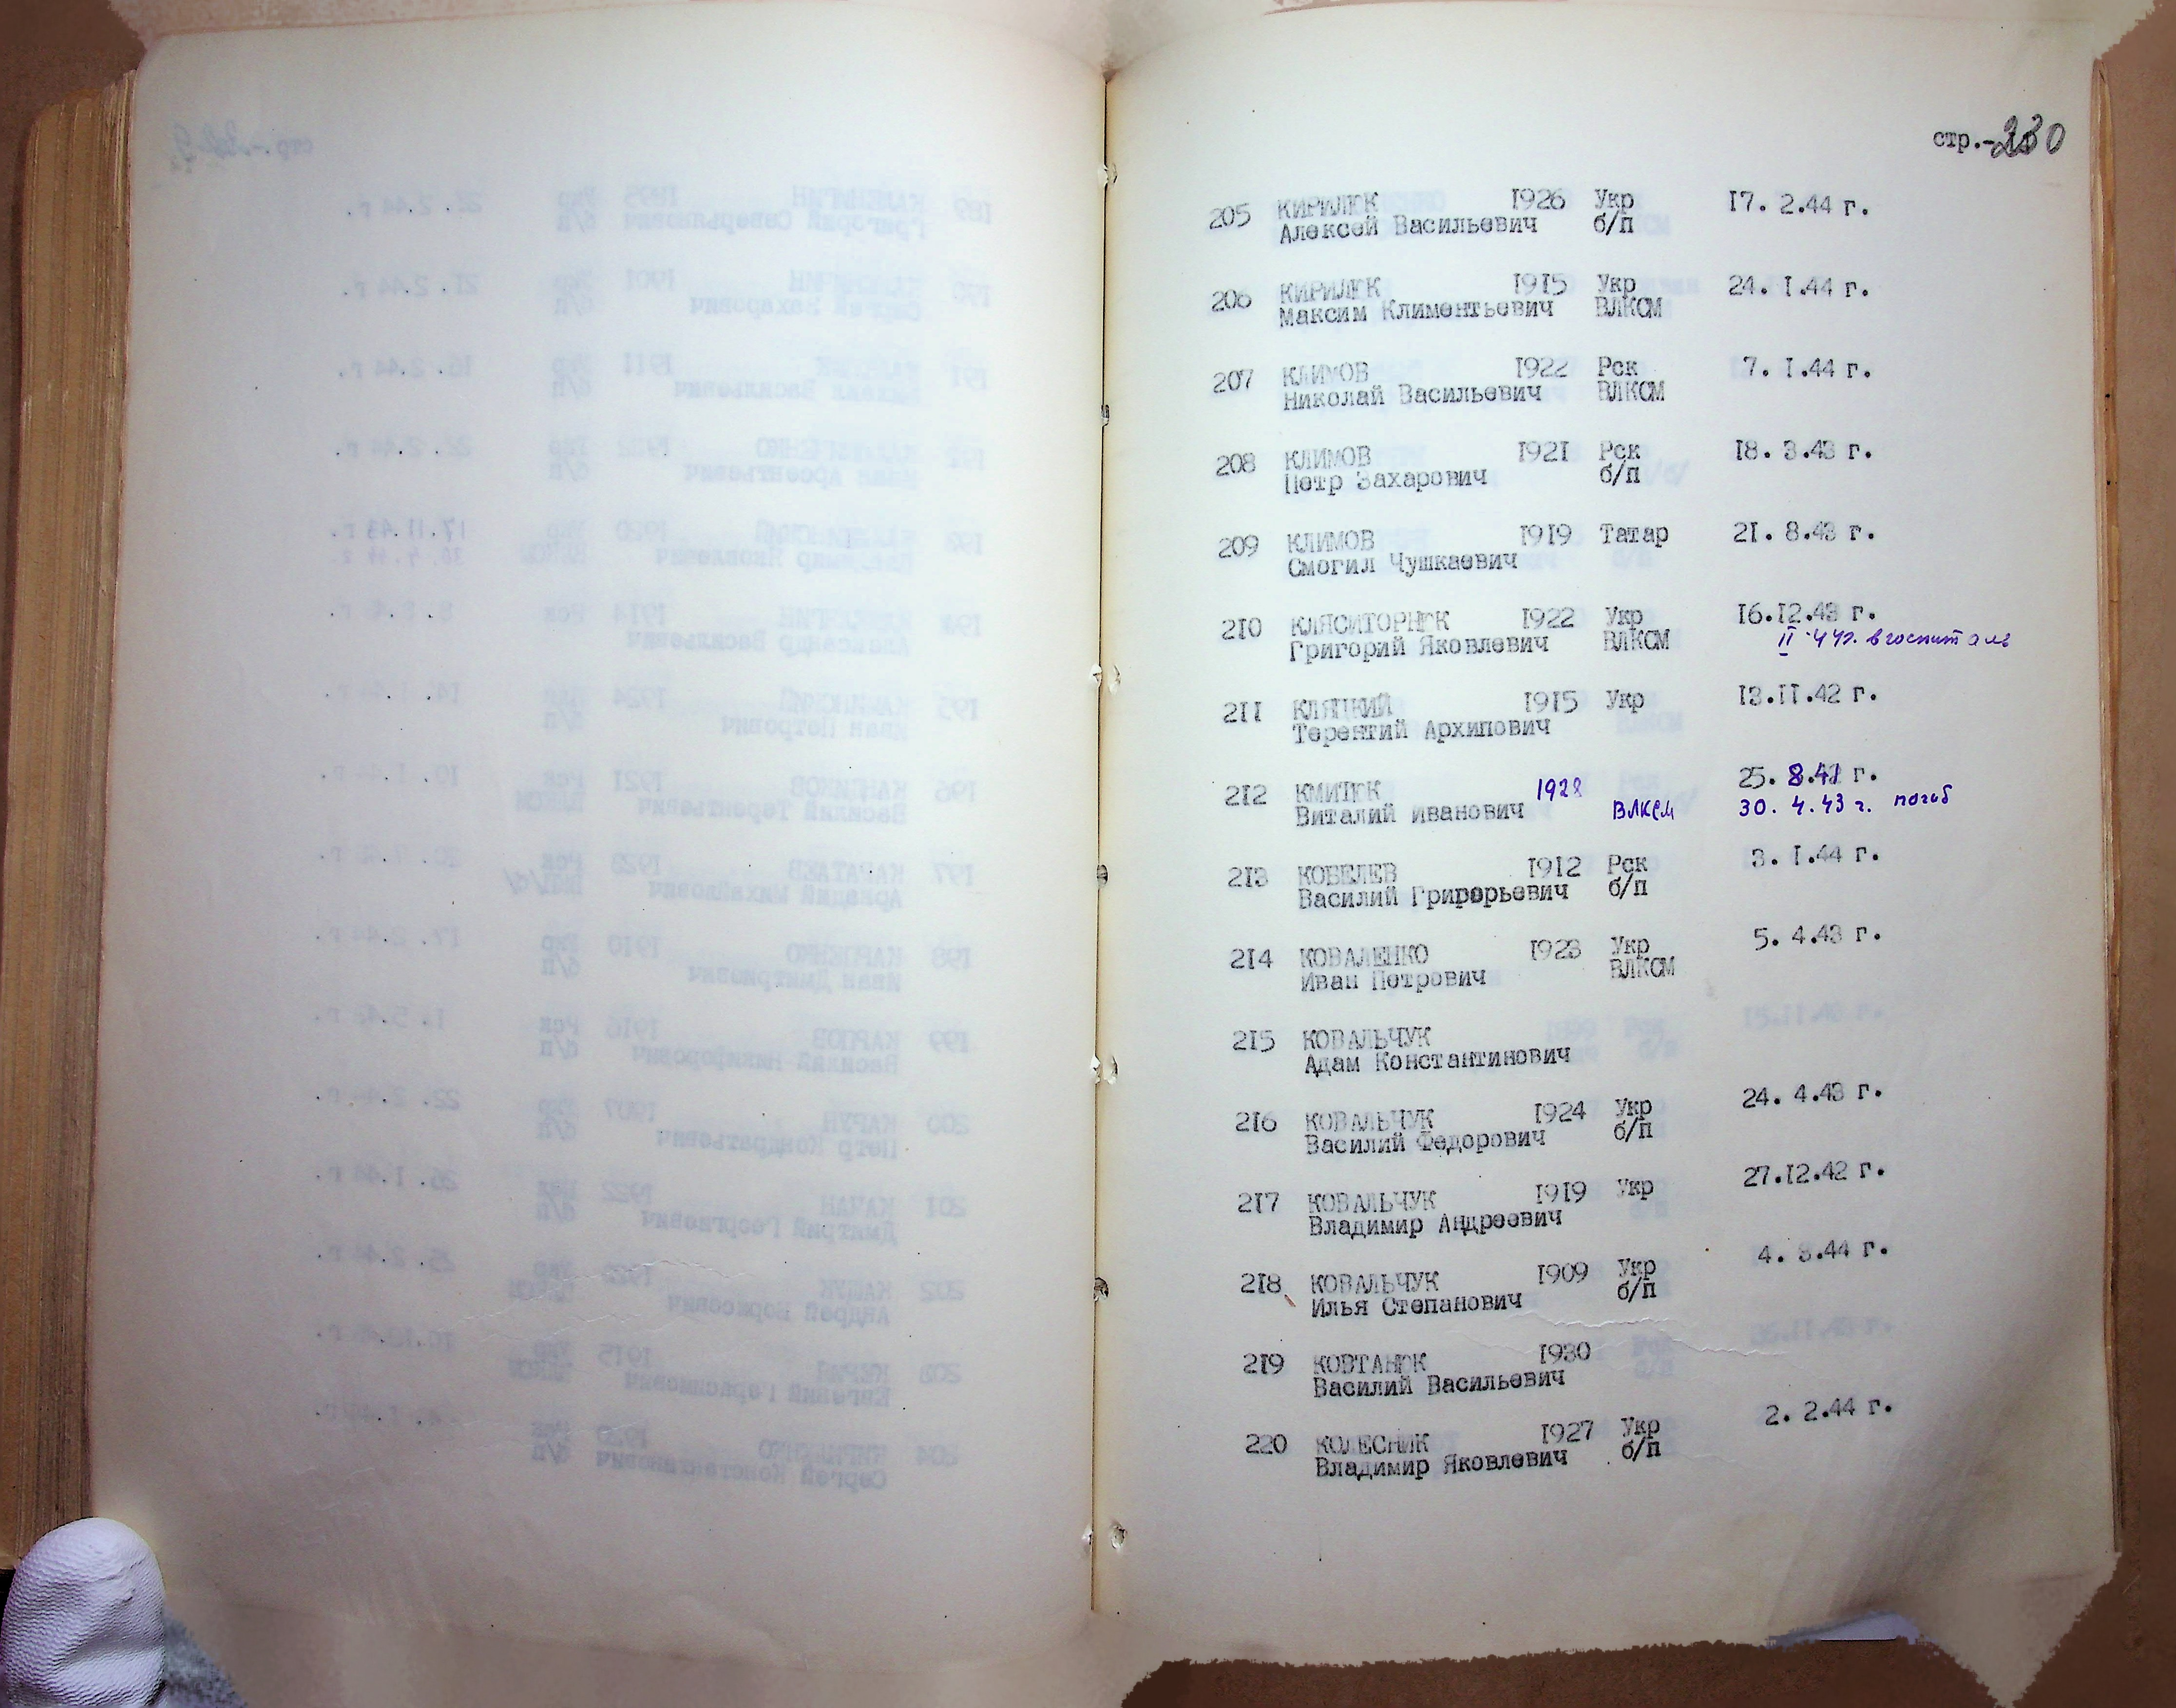 стр.-230
205 КИРИЛЮК 1926 Укр 17. 2.44 г.
Алексей Васильевич б/п
206 КИРИЛЮК 1915 Укр 24. 1.44 г.
Максим Климентьевич ВЛКСМ
207 КЛИМОВ 1922 Рск 7. 1.44 г.
Николай Васильевич ВЛКСМ
208 КЛИМОВ 1921 Рск 18. 3.43 г.
Петр Захарович б/п
209 КЛИМОВ 1919 Татар 21. 8.43 г.
Смогил Чушкаевич
210 КЛЯСИТОРНЮК 1922 Укр 16.12.43 г.
Григорий Яковлевич ВЛКСМ II.44г. в госпиталь
211 КЛЯЦКИЙ 1915 Укр 13.11.42 г.
Терентий Архипович
212 КМИТЮК 1928 25. 8.41 г.
Виталий Иванович ВЛКСМ 30. 4.43 г. погиб
213 КОБЕЛЕВ 1912 Рск 3. 1.44 г.
Василий Григорьевич б/п
214 КОВАЛЕНКО 1923 Укр 5. 4.43 г.
Иван Петрович ВЛКСМ
215 КОВАЛЬЧУК
Адам Константинович
216 КОВАЛЬЧУК 1924 Укр 24. 4.43 г.
Василий Федорович б/п
217 КОВАЛЬЧУК 1919 Укр 27.12.42 г.
Владимир Андреевич
218 КОВАЛЬЧУК 1909 Укр 4. 3.44 г.
Илья Степанович б/п
219 КОВТАНЮК 1930
Василий Васильевич
220 КОЛЕСНИК 1927 Укр 2. 2.44 г.
Владимир Яковлевич б/п